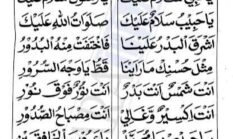 يَا حَبِيبْ سَلَامٌ عَلَيْكَ صَلَوَاتُ اللهِ عَلَيْكَ
اَشْرَقَ الْبَدْرُ عَلَيْنَا فَاخْتَفَتْ مِنْهُ الْبُدُوْرُ
مِثْلَ حُسْنِكَ مَا رَاَيْنَا قَطُّ يَا وَجْهَ السُّرُوْرِ
اَنْتَ شَمْسٌ اَنْتَ بَدْرٌ اَنْتَ نُوْرٌ فَوْقَ نُوْرٍ
اَنْتَ اِكْسِيْرٌ وَغَالِي اَنْتَ مِصْبَاحُ الصُّدُوْرِ